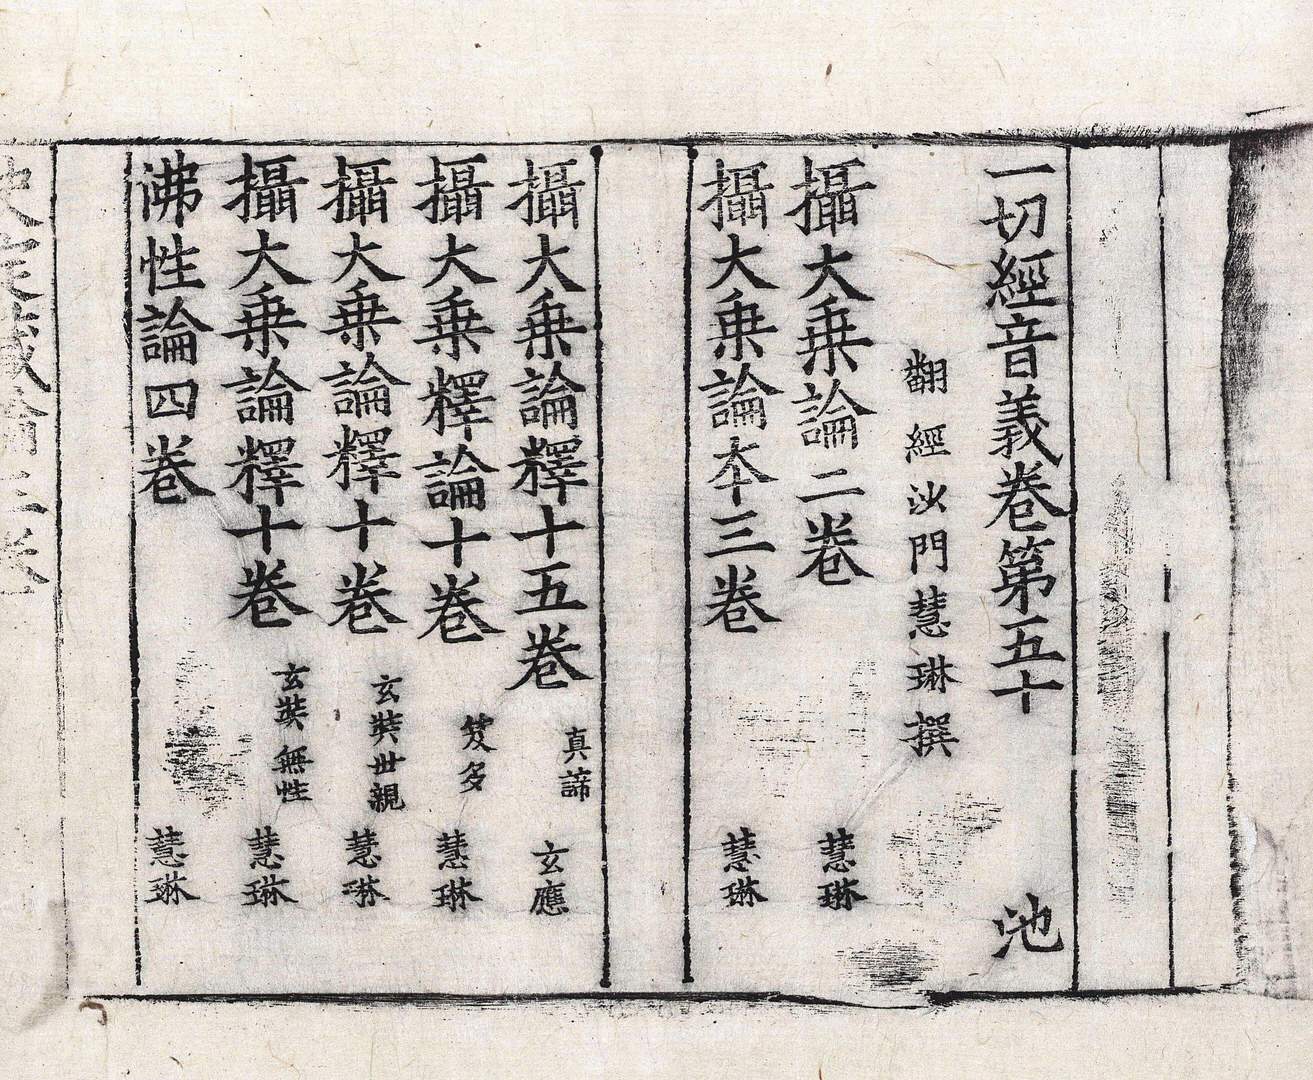 一切經音義卷第五十 池
翻經沙門慧琳撰
攝大乗論二卷 慧琳
攝大乗論本三卷 慧琳
攝大乗論釋十五卷 真諦 玄應
攝大乗釋論十卷 笈多 慧琳
攝大乗論釋十卷 玄奘世親 慧琳
攝大乗論釋十卷 玄奘無性 慧琳
沸性論四卷 慧琳